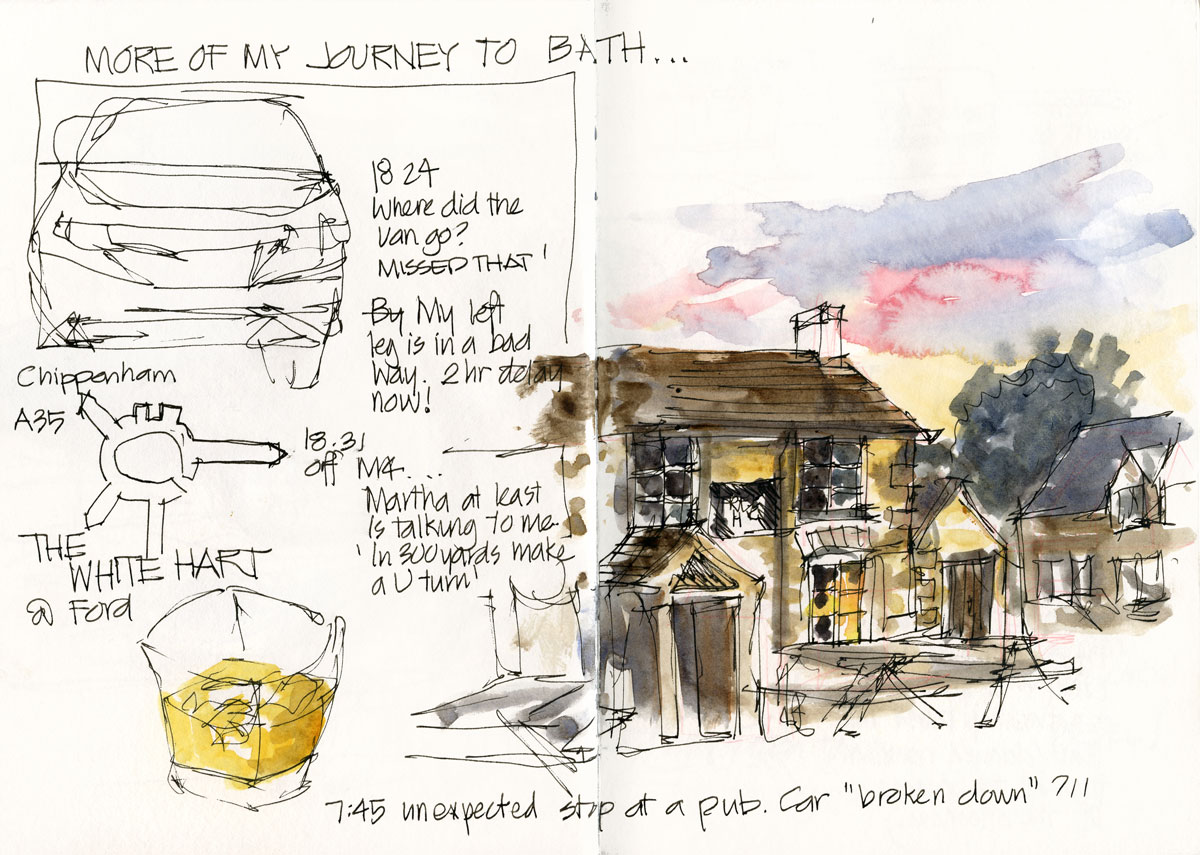 MORE OF MY JOURNEY TO BATH...
18 24
Where did the
van go?
MISSED THAT!
By My left
leg is in a bad
way. 2 hr delay
now!
Chippenham
A35
18:31
off M4....
Martha at least
is talking to me.
'In 300 yards make
a U turn'
THE
WHITE HART
@ Ford
7:45 unexpected stop at a pub. Car "broken down" ?!!